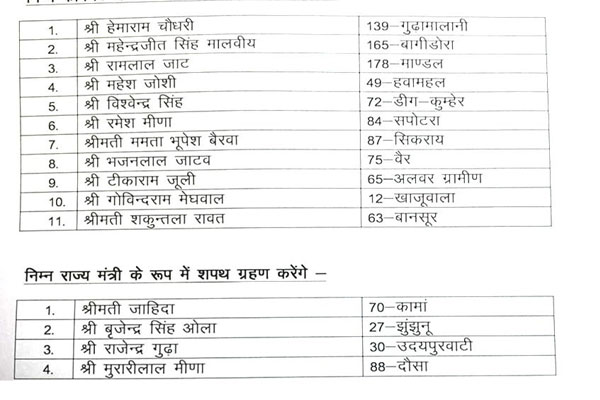 1. श्री हेमाराम चौधरी 139–गुढ़ामालानी
2. श्री महेन्द्रजीत सिंह मालवीय 165–बागीडोरा
3. श्री रामलाल जाट 178–माण्डल
4. श्री महेश जोशी 49–हवामहल
5. श्री विश्वेन्द्र सिंह 72–डीग–कुम्हेर
6. श्री रमेश मीणा 84–सपोटरा
7. श्रीमती ममता भूपेश बैरवा 87–सिकराय
8. श्री भजनलाल जाटव 75–वैर
9. श्री टीकाराम जूली 65–अलवर ग्रामीण
10. श्री गोविन्दराम मेघवाल 12–खाजूवाला
11. श्रीमती शकुन्तला रावत 63–बानसूर
निम्न राज्य मंत्री के रूप में शपथ ग्रहण करेंगे –
1. श्रीमती जाहिदा 70–कामां
2. श्री बृजेन्द्र सिंह ओला 27–झुंझुनू
3. श्री राजेन्द्र गुढ़ा 30–उदयपुरवाटी
4. श्री मुरारीलाल मीणा 88–दौसा